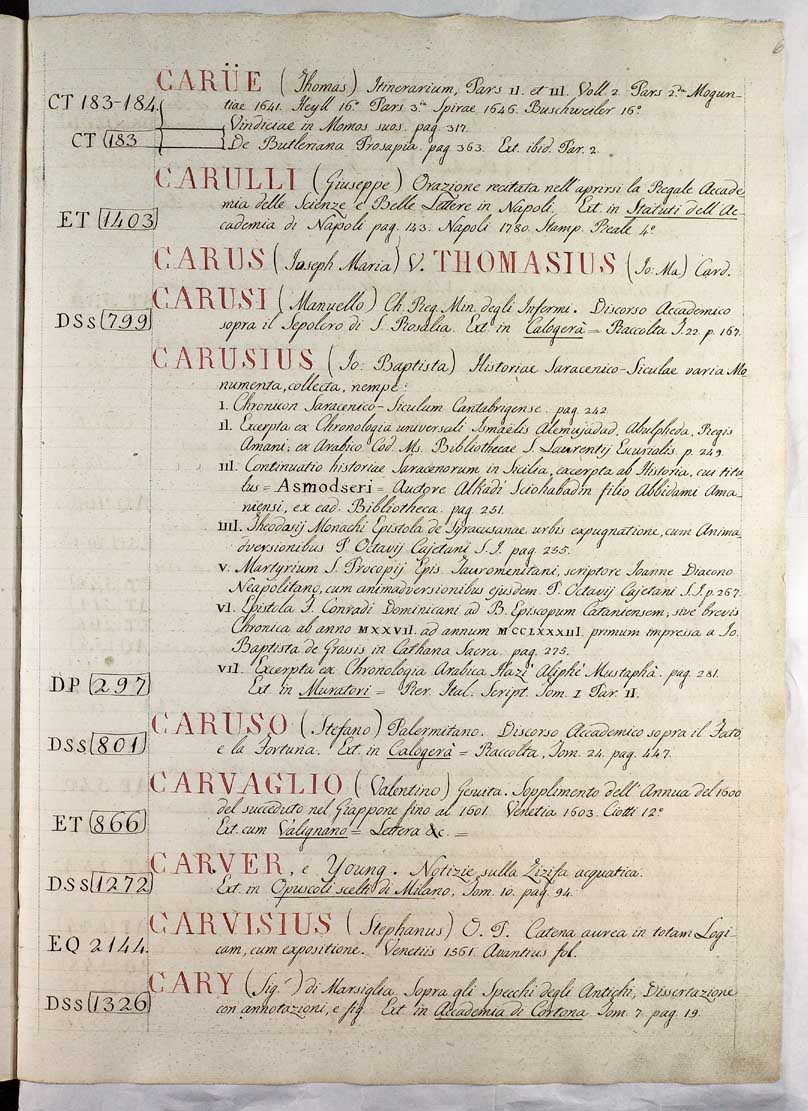 6
CARÜE (Thomas) Itinerarium, Pars II. et III. Voll. 2. Pars 2.da Mogun-
CT 183-184. tiae 1641. Heyll 16.o Pars 3.a Spirae 1646. Buschweiler 16.o
Vindiciae in Momos suos. pag. 317.
CT 183 De Butleriana Prosapia. pag. 363. Ext. ibid. Par. 2.
CARULLI (Giuseppe) Orazione recitata nell'aprirsi la Regale Accade-
mia delle Scienze e Belle Lettere in Napoli. Ext. in Statuti dell'Ac-
ET 1403 cademia di Napoli pag. 143. Napoli 1780. Stamp. Reale 4.o
CARUS (Joseph Maria) V. THOMASIUS (Io: Ma.) Card.
CARUSI (Manuello) Ch. Reg. Min. degli Infermi. Discorso Accademico
DSs 799 sopra il Sepolcro di S. Rosalia. Ext. in Calogerà = Raccolta T. 22. p. 167.
CARUSIUS (Io: Baptista) Historiae Saracenico-Siculae varia Mo-
numenta, collecta, nempe:
I. Chronicon Saracenico-Siculum Cantabrigense. pag. 242
II. Excerpta ex Chronologia universali Ismaëlis Alemujadad, Abulpheda, Regis
Amani; ex Arabico Cod. Ms. Bibliothecae S. Laurentij Escurialis. p. 249.
III. Continuatio historiae Saracenorum in Sicilia, excerpta ab Historia, cui titu-
lus = Asmodseri = Auctore Alkadi Sciohabadin filio Abbidami Ama-
niensi, ex ead. Bibliotheca. pag. 251.
IIII. Theodosij Monachi Epistola de Syracusanae urbis expugnatione, cum Anima-
dversionibus P. Octavij Cajetani S.I. pag. 255.
V. Martyrium S. Procopij Epis. Tauromenitani, scriptore Ioanne Diacono
Neapolitano, cum animadversionibus ejusdem P. Octavij Cajetani S.I. p. 267.
VI. Epistola F. Conradi Dominicani ad B. Episcopum Cataniensem; sive brevis
Chronica ab anno MXXVII. ad annum MCCLXXXIII. primum impressa a Io.
Baptista de Grossis in Cathana Sacra. pag. 275.
VII. Excerpta ex Chronologia Arabica Hazi Aliphé Mustaphà. pag. 281.
DP 297 Ext. in Muratori = Rer. Ital. Script. Tom. I Par. II.
CARUSO (Stefano) Palermitano. Discorso Accademico sopra il Fato,
DSs 801 e la Fortuna. Ext. in Calogerà = Raccolta, Tom. 24. pag. 447.
CARVAGLIO (Valentino) Gesuita. Sopplimento dell'Annua del 1600
del succeduto nel Giappone fino al 1601. Venetia 1603. Ciotti 12.o
ET 866 Ext. cum Valignano = Lettera &c. =
CARVER, e Young. Notizie sulla Zizifa acquatica.
DSs 1272 Ext. in Opuscoli scelti di Milano, Tom. 10. pag. 94.
CARVISIUS (Stephanus) O. P. Catena aurea in totam Logi-
EQ 2144. cam, cum expositione. Venetiis 1561. Avantius fol.
CARY (Sig.r) di Marsiglia. Sopra gli Specchi degli Antichi, Dissertazione
DSs 1326 con annotazioni, e fig. Ext. in Accademia di Cortona Tom. 7. pag. 19.